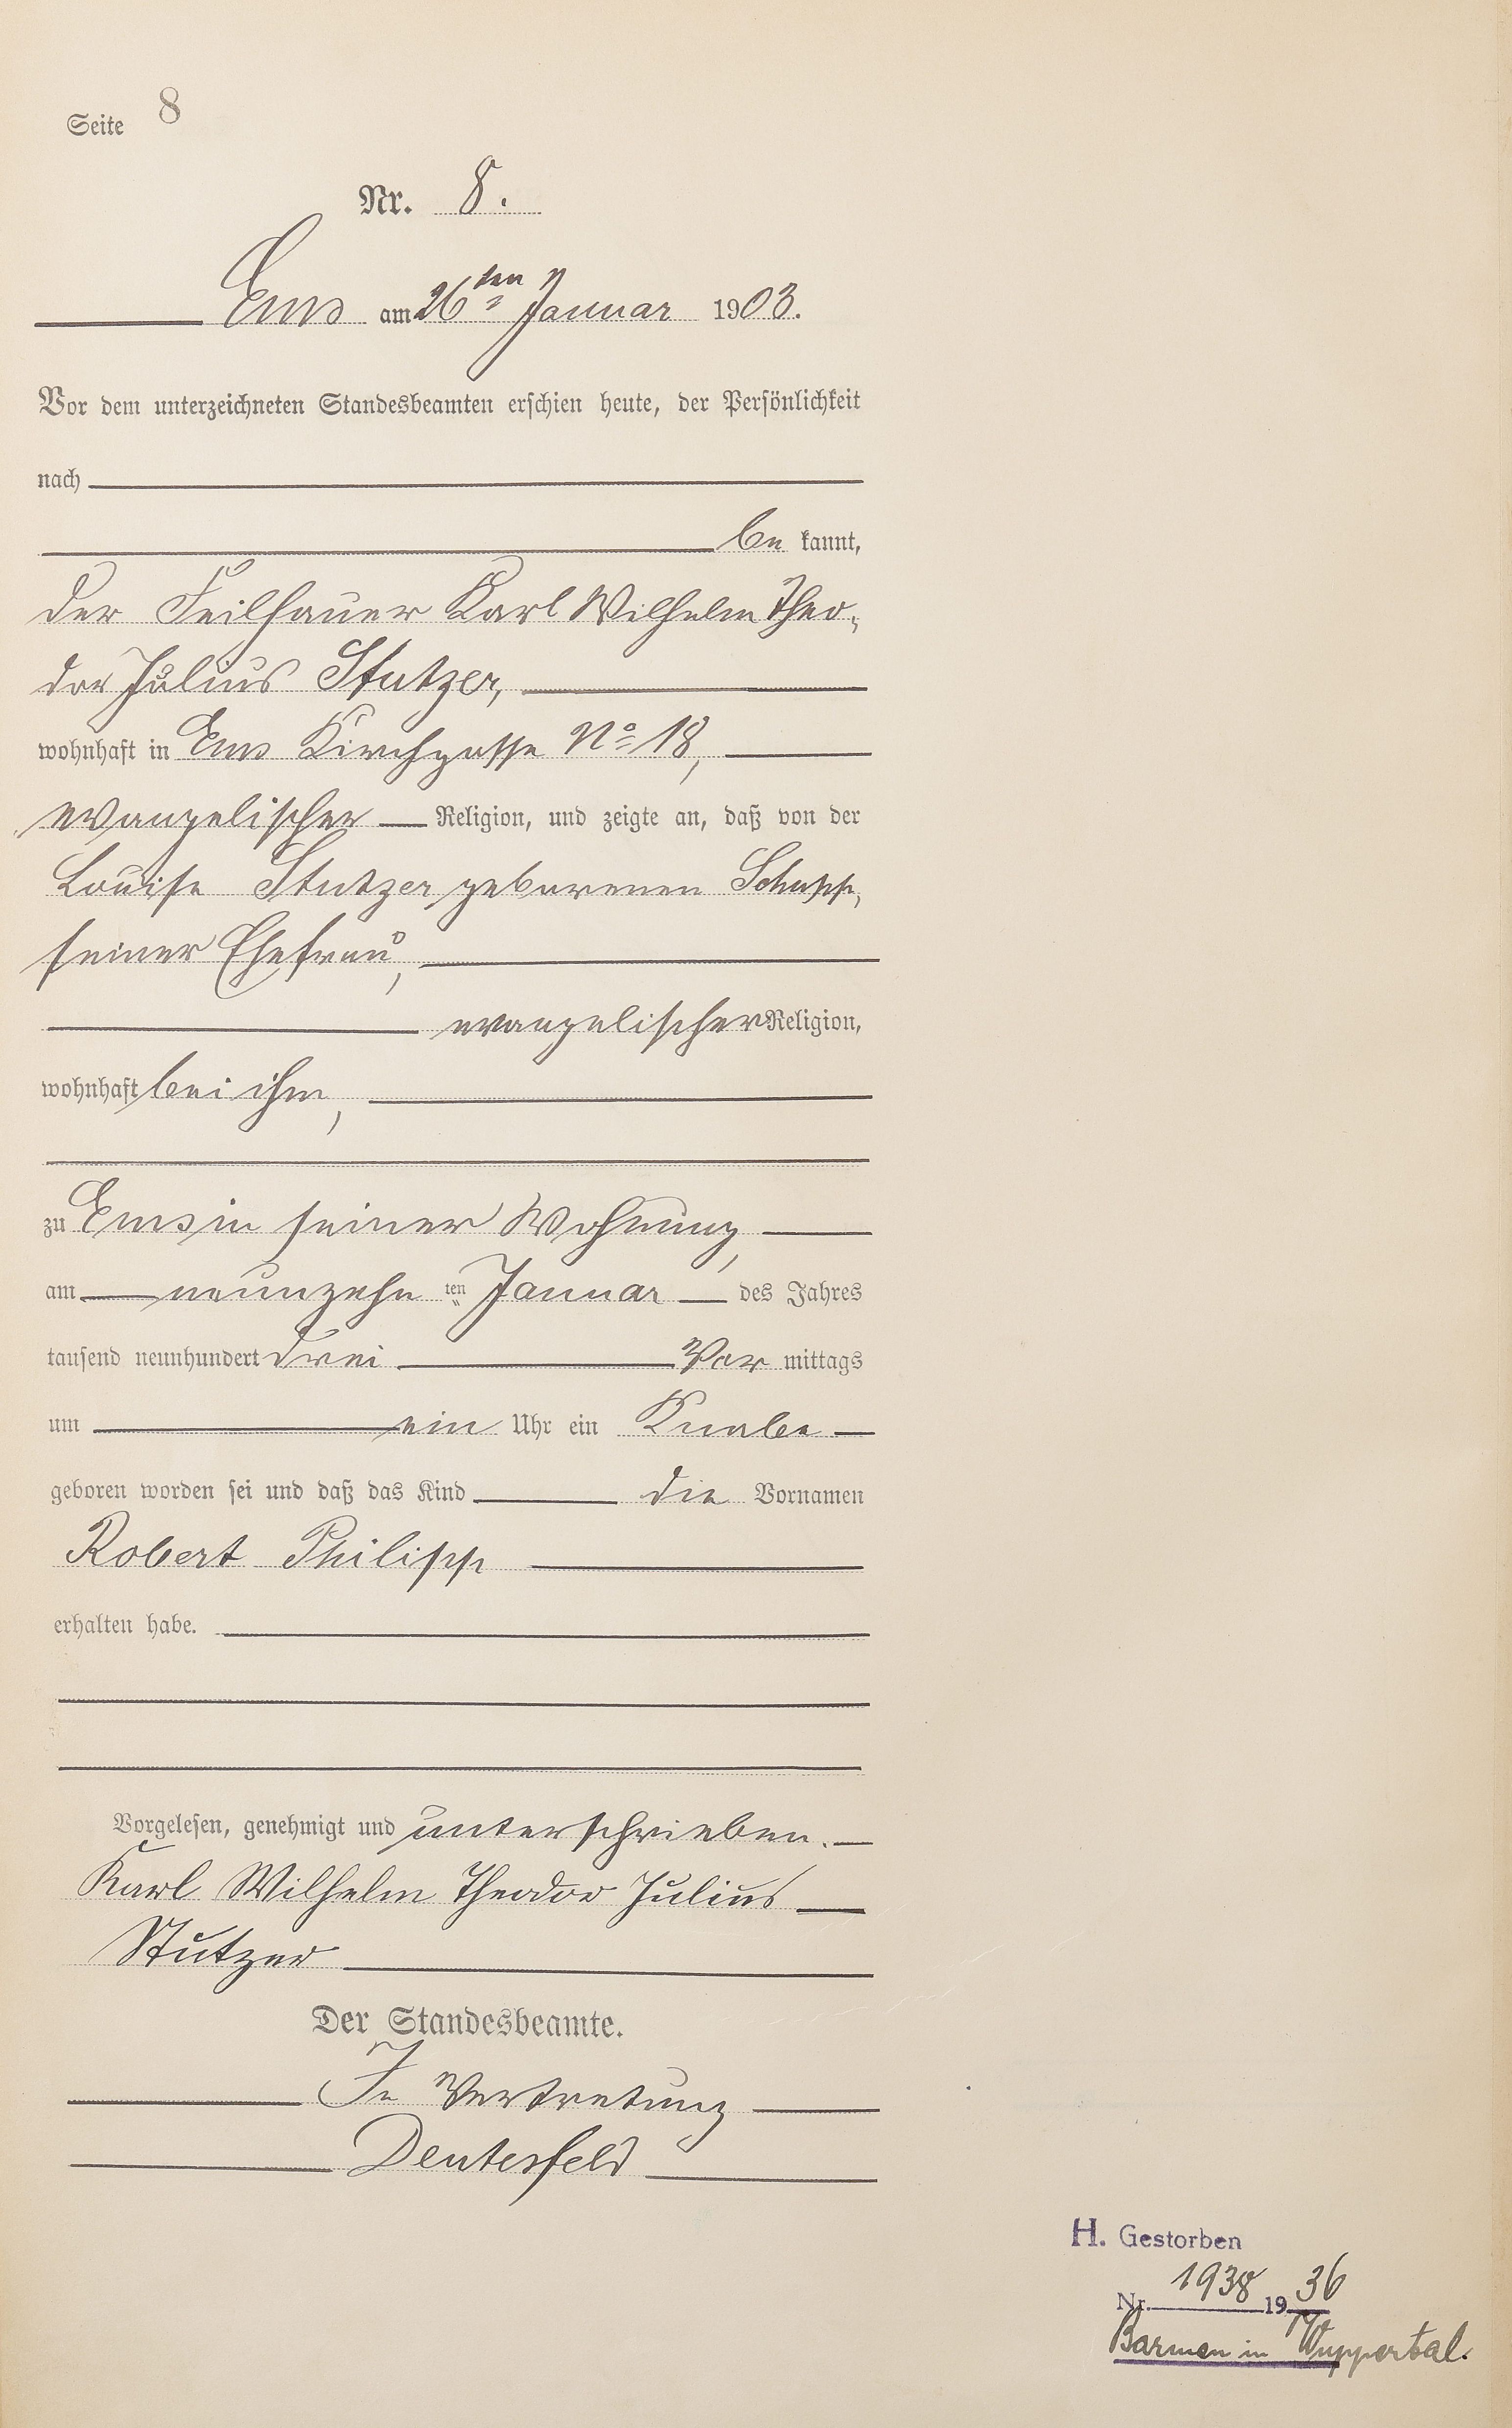 Seite 8
Nr. 8.
Ems am 26ten Januar 1903.
Vor dem unterzeichneten Standesbeamten erschien heute, der Persönlichkeit
nach
be kannt,
der Feilhauer Karl Wilhelm Theo-
dor Julius Stutzer,
wohnhaft in Ems Kirchgasse No 18,
evangelischer Religion, und zeigte an, daß von der
Louise Stutzer geborenen Schupp,
seiner Ehefrau,
evangelischer Religion,
wohnhaft bei ihm,
zu Ems in seiner Wohnung,
am neunzehn ten Januar des Jahres
tausend neunhundert drei Vor mittags
um ein Uhr ein Knabe
geboren worden sei und daß das Kind die Vornamen
Robert Philipp
erhalten habe.
Vorgelesen, genehmigt und unterschrieben.
Karl Wilhelm Theodor Julius
Stutzer
Der Standesbeamte.
In Vertretung
Deutesfeld
H. Gestorben
Nr. 1938 1936
Barmen in Wuppertal.